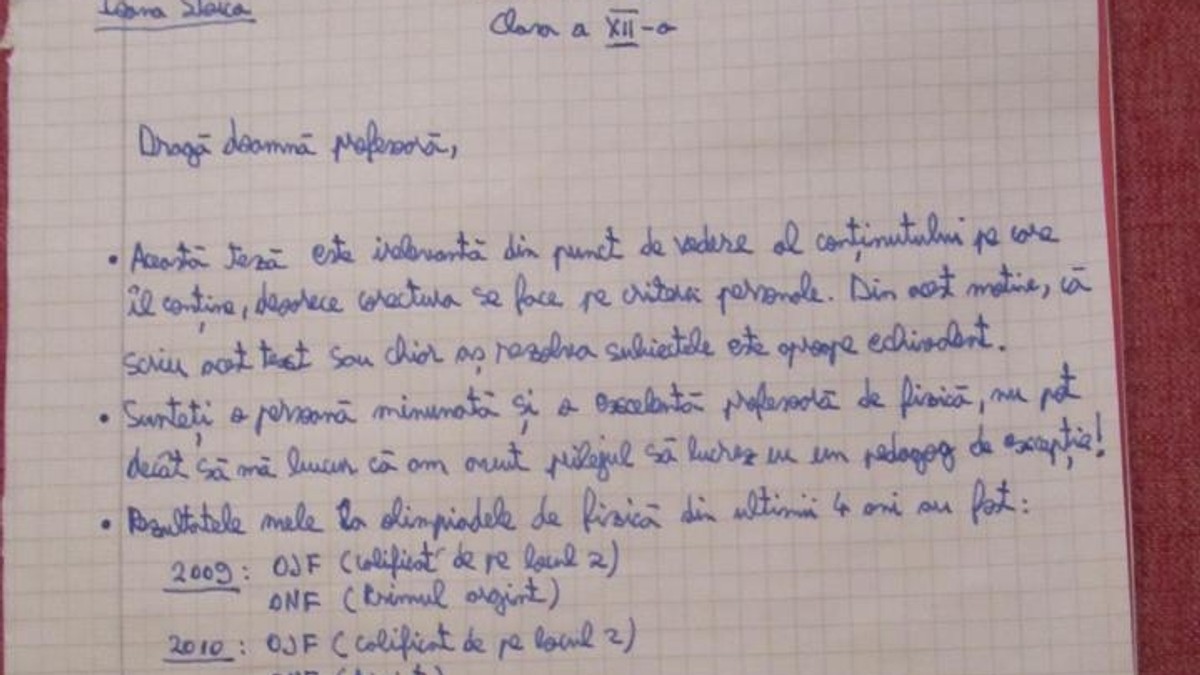 Ioana Stoica
Clasa a XII-a
Dragă doamnă profesoară,
• Această teză este irelevantă din punct de vedere al conținutului pe care
îl conține, deoarece corectura se face pe criterii personale. Din acest motive, că
scriu acest text sau chiar aș rezolva subiectele este aproape echivalent.
• Sunteți o persoană minunată și o excelentă profesoară de fizică, nu pot
decât să mă bucur că am avut prilejul să lucrez cu un pedagog de excepție!
• Rezultatele mele la olimpiadele de fizică din ultimii 4 ani au fost:
2009: OJF (calificat de pe locul 2)
ONF (Primul argint)
2010: OJF (calificat de pe locul 2)